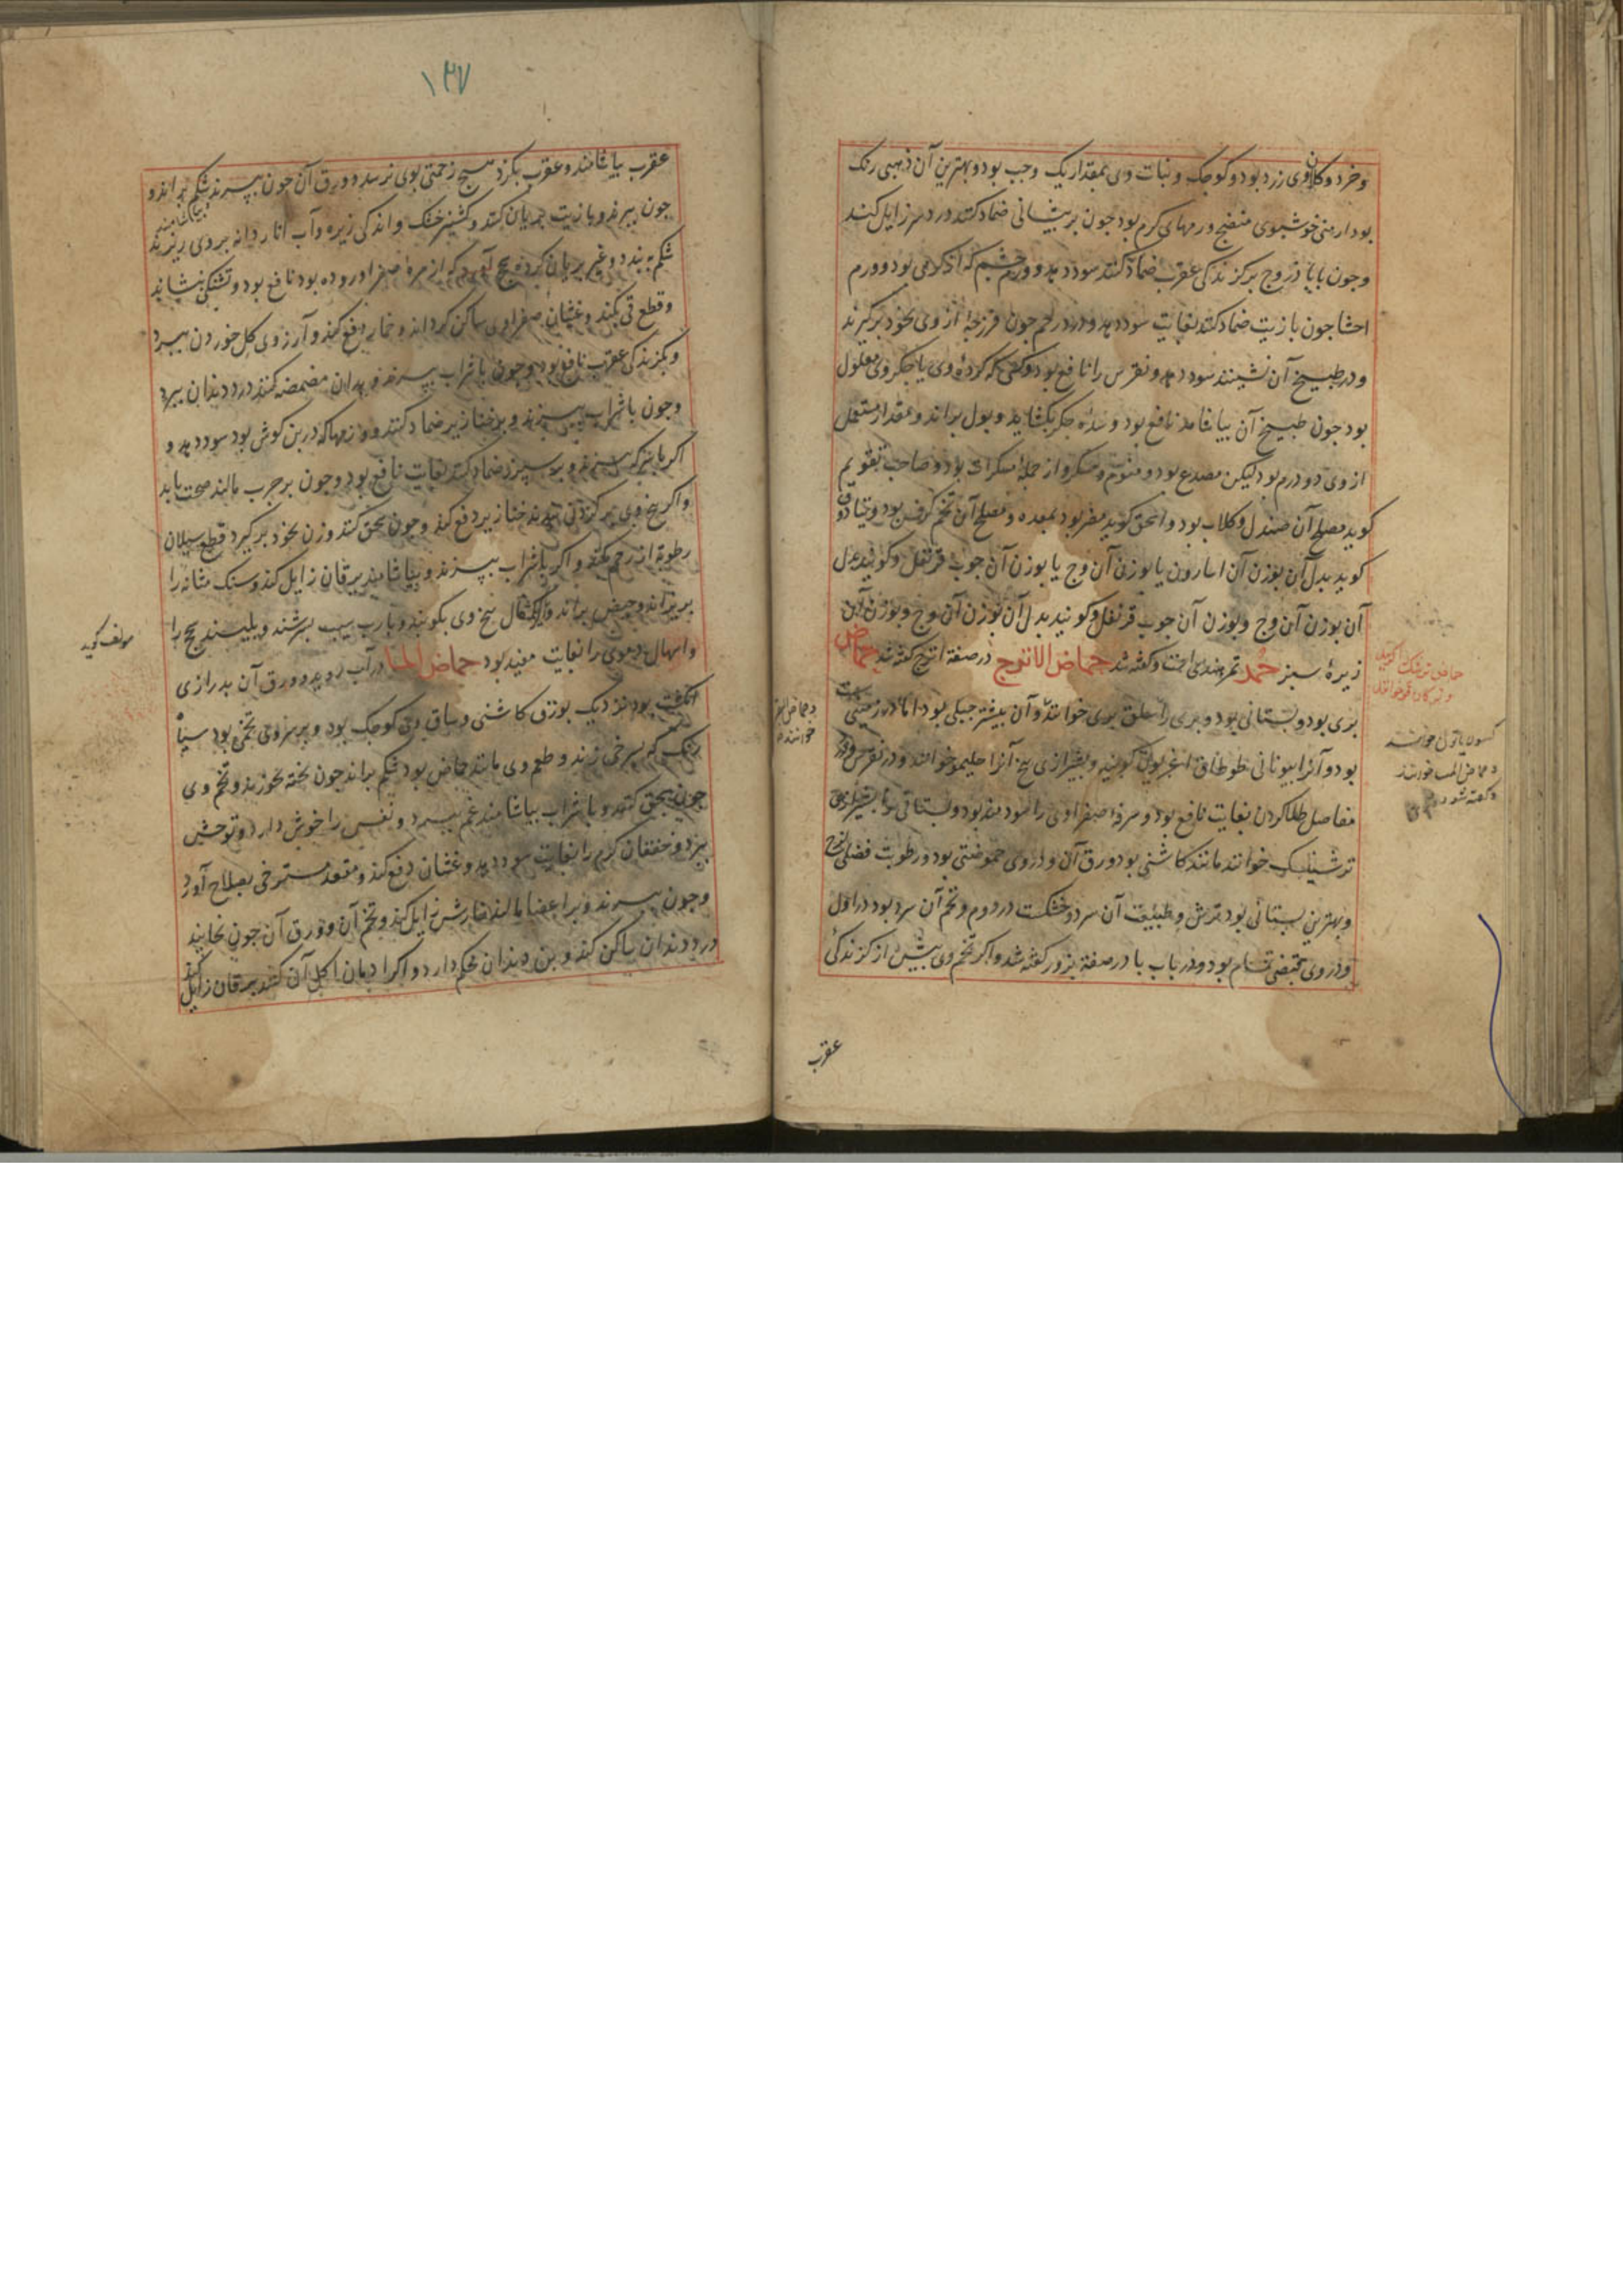 وخرد وکل وی زرد بود و کوچک و نبات وی بمقدار یک وجب بود و بهترین آن ذهبی رنک
بود ارمنی خوشبوی منضج ورمهای کرم بود چون بر پیشانی ضماد کنند درد سر زایل کند
وچون با باذروج بر کزندکی عقرب ضماد کنند سود دهد و ورم چشم که از کرمی بود و ورم
احشا چون با زیت ضماد کنند بغایت سود دهد و درد رحم چون فرزجۀ از وی بخود برکیرند
و در طبیخ آن نشینند سود دهد و نقرس را نافع بود و کسی که کردۀ وی یا جکر وی معلول
بود چون طبیخ آن بیاشامد نافع بود و سدۀ جکر بکشاید و بول براند و مقدار مستعمل
از وی دو درم بود لیکن مصدع بود و منوم و مسکر و از جملۀ مسکرات بود و صاحب تقویم
کوید مصلح آن صندل و کلاب بود و اسحق کوید مضر بود بمعده و مصلح آن تخم کرفس بود و نیادوق
کوید بدل آن بوزن آن اسارون یا بوزن آن وج یا بوزن آن چوب قرنفل و کویند بدل
آن بوزن آن وج و بوزن آن چوب قرنفل و کویند بدل آن بوزن آن وج و بوزن آن
زیرۀ سبز حمد تمر هندی است و کفته شد حماض الاترج در صفة اترج کفته شد حماض
بری بود و بستانی بود و بری را سلق بری خوانند و آن بیشتر جبلی بود اما در زمین
بود و آنرا بیونانی طوطاق اغریون کویند و بشیرازی بیخ آنرا حلیمو خوانند و در نقرس و در
مفاصل طلا کردن بغایت نافع بود و مرۀ صفراوی را سودمند بود و بستانی را بشیرازی
ترشینک خوانند مانند کاشنی بود ورق آن و در وی حموضتی بود و رطوبت فضلی لزج
و بهترین بستانی بود ترش و طبیعت آن سرد و خشکست در دوم و تخم آن سرد بود در اول
و در وی قبضی تمام بود و در باب با در صفة بزور کفته شد و اکر تخم وی پیش از کزندکی
عقرب
حماض ترشک کویند
و حماض البقر
خوانند
۱۳۷
عقرب بیاشامند و عقرب بکزد هیچ زحمتی بوی نرسد و ورق آن چون بپزند شکم براند و بیاشامند
چون بپزند و با زیت بریان کنند و کشنیز خشک و اندکی زیره و آب انار دانه بر وی ریزند
شکم ببندد و غیر بریان کرده سحج آورد که از مرۀ صفرا در روده بود نافع بود و تشنکی بنشاند
و قطع قی بکند و غثیان صفراوی ساکن کرداند و خمار دفع کند و آرزوی کل خوردن ببرد
و کزندکی عقرب نافع بود و چون با شراب بپزند و بدان مضمضه کنند درد دندان ببرد
و چون با شراب بپزند و بر خنازیر ضماد کنند و ورمها که در بن کوش بود سود دهد و
اکر با سرکه بپزند و بر سپرز ضماد کنند بغایت نافع بود و چون بر جرب مالند صحت یابد
و اکر بیخ وی بر کردن بندند خنازیر دفع کند و چون سحق کنند و زن بخود برکیرد قطع سیلان
رطوبة از رحم بکند و اکر با شراب بپزند و بیاشامند یرقان زایل کند و سنک مثانه را
بریزاند و حیض براند و اکر مثقال بیخ وی بکوبند و با رب سیب بسرشند و بلیسند سحج را
و اسهال دموی را بغایت مفید بود حماض الماء در آب روید و ورق آن بدرازی
انکشت بود نزدیک بورق کاشنی و ساق وی کوچک بود و بر سر وی تخمی بود سیاه
رنک که بسرخی زند و طعم وی مانند حماض بود شکم براند چون پخته خورند و تخم وی
چون سحق کنند و با شراب بیاشامند غم ببرد و نفس را خوش دارد و توحش
ببرد و خفقان کرم را بغایت سود دهد و غثیان دفع کند و مقعد مسترخی بصلاح آورد
و چون بپزند و بر اعضا مالند خارش زایل کند و تخم آن و ورق آن چون بخایند
درد دندان ساکن کند و بن دندان محکم دارد و اکر ادمان اکل آن کنند یرقان زایل کند
مولف کوید